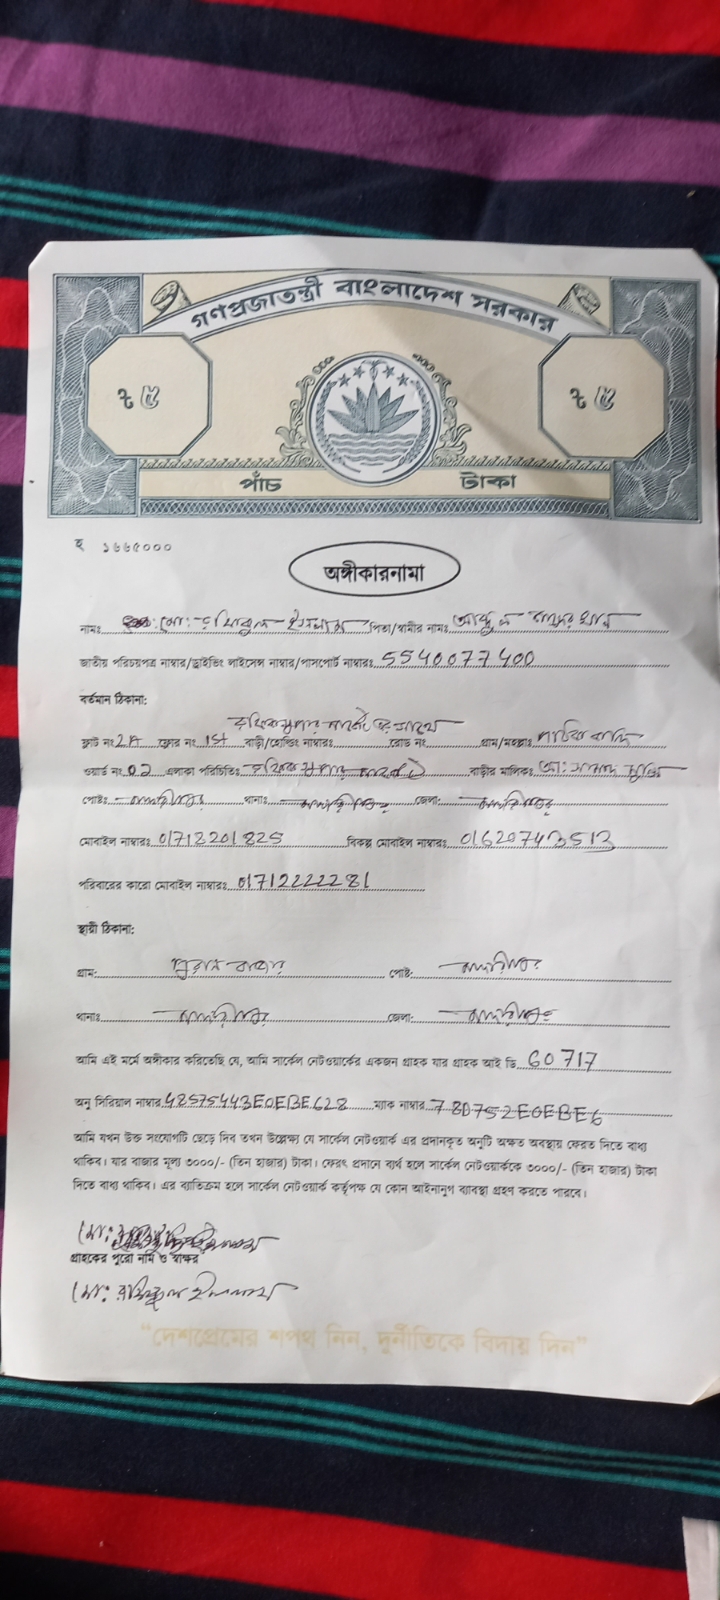 গণপ্রজাতন্ত্রী বাংলাদেশ সরকার
৳ ৫ ৳ ৫
পাঁচ টাকা
হ ১৬৬৫০০০
অঙ্গীকারনামা
নামঃ মো:- রফিকুল ইসলাম পিতা/স্বামীর নামঃ আব্দুল
জাতীয় পরিচয়পত্র নাম্বার/ড্রাইভিং লাইসেন্স নাম্বার/পাসপোর্ট নাম্বারঃ 5540077400
বর্তমান ঠিকানা:
ফ্লাট নং 2A ফ্লোর নং 1st বাড়ী/হোল্ডিং নাম্বারঃ রোড নং গ্রাম/মহল্লাঃ
ওয়ার্ড নং 02 এলাকা পরিচিতিঃ বাড়ীর মালিকঃ
পোষ্টঃ মাদারীপুর থানাঃ মাদারীপুর জেলা: মাদারীপুর
মোবাইল নাম্বারঃ 01718201825 বিকল্প মোবাইল নাম্বারঃ 01620743513
পরিবারের কারো মোবাইল নাম্বারঃ 01712222281
স্থায়ী ঠিকানা:
গ্রাম: পুরান বাজার পোষ্ট: মাদারীপুর
থানাঃ মাদারীপুর জেলা: মাদারীপুর
আমি এই মর্মে অঙ্গীকার করিতেছি যে, আমি সার্কেল নেটওয়ার্কের একজন গ্রাহক যার গ্রাহক আই ডি 60717
অনু সিরিয়াল নাম্বার 48575443E0EBE628 ম্যাক নাম্বার 78D752E0EBE6
আমি যখন উক্ত সংযোগটি ছেড়ে দিব তখন উল্লেক্ষ্য যে সার্কেল নেটওয়ার্ক এর প্রদানকৃত অনুটি অক্ষত অবস্থায় ফেরত দিতে বাধ্য
থাকিব। যার বাজার মূল্য ৩০০০/- (তিন হাজার) টাকা। ফেরৎ প্রদানে ব্যর্থ হলে সার্কেল নেটওয়ার্ককে ৩০০০/- (তিন হাজার) টাকা
দিতে বাধ্য থাকিব। এর ব্যতিক্রম হলে সার্কেল নেটওয়ার্ক কর্তৃপক্ষ যে কোন আইনানুগ ব্যাবস্থা গ্রহণ করতে পারবে।
মো:
গ্রাহকের পুরো নাম ও স্বাক্ষর
মো: রফিকুল ইসলাম
"দেশপ্রেমের শপথ নিন, দুর্নীতিকে বিদায় দিন"